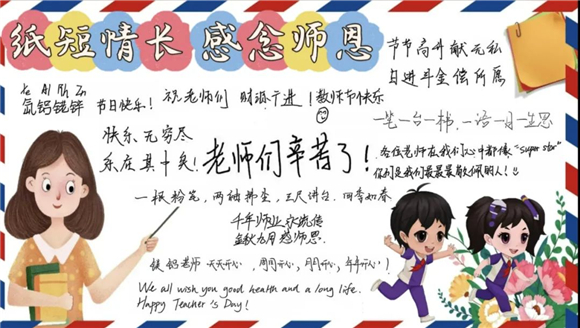 纸短情长 感念师恩
节节高升献无私
日进斗金偿所属
Al Rh Zn
氙铝铑锌 节日快乐! 祝老师们 财源广进! 教师节快乐
快乐无穷尽
老师们辛苦了!
各位老师在我们心中都像"super star"
你们是我们最最最敬佩的人!!
一根粉笔,两袖拂尘,三尺讲台,四季如春
千年师业永流传
金秋九月感师恩.
老师 天天开心,周周开心,月月开心,年年开心!
We all wish you good health and a long life.
Happy Teacher's Day!